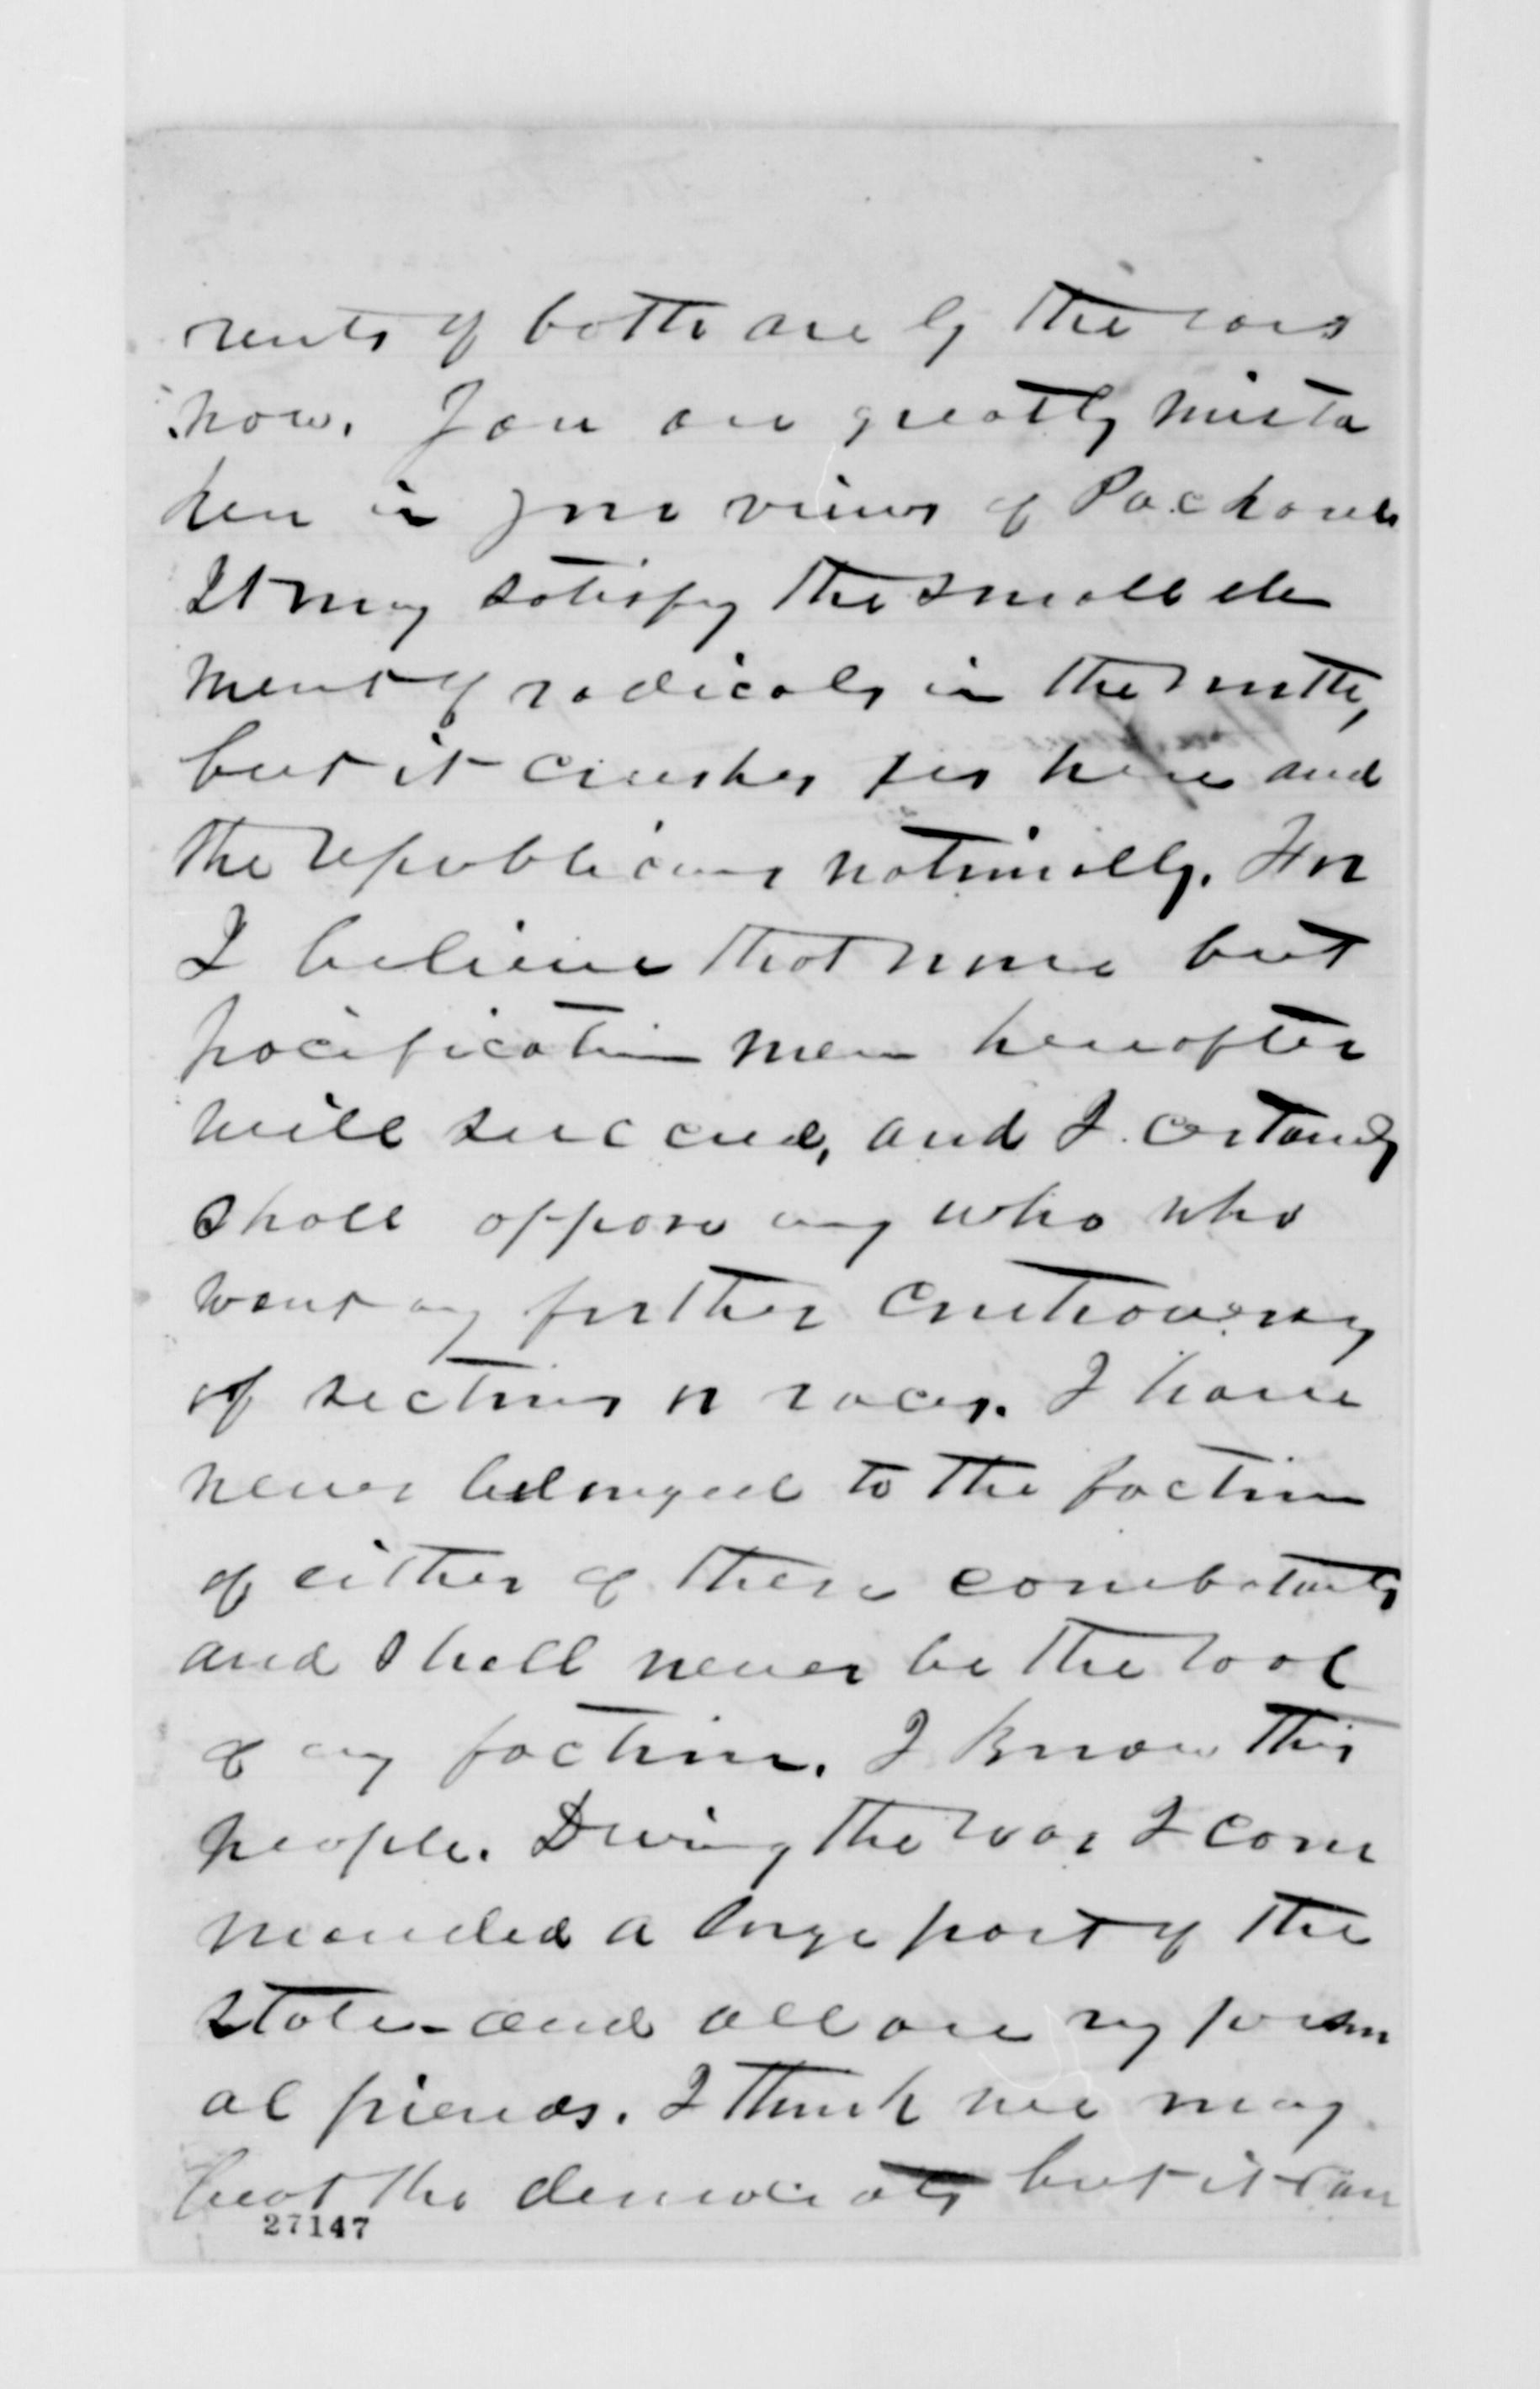 rents of both are by the ears
now. You are greatly mista
ken in your views of Packard
It may satisfy the small ele
ment of radicals in the north,
but it crushes us here and
the republicans nationally. For
I believe that none but
pacification men hereafter
will succeed, and I certainly
shall oppose any who who
want any further controversy
of sections or races. I have
never belonged to the faction
of either of these combatants
and shall never be the tool
of any faction. I know this
people. During the war I com
manded a large part of the
state - and all are my person
al friends. I think we may
beat the democrats but it can
27147